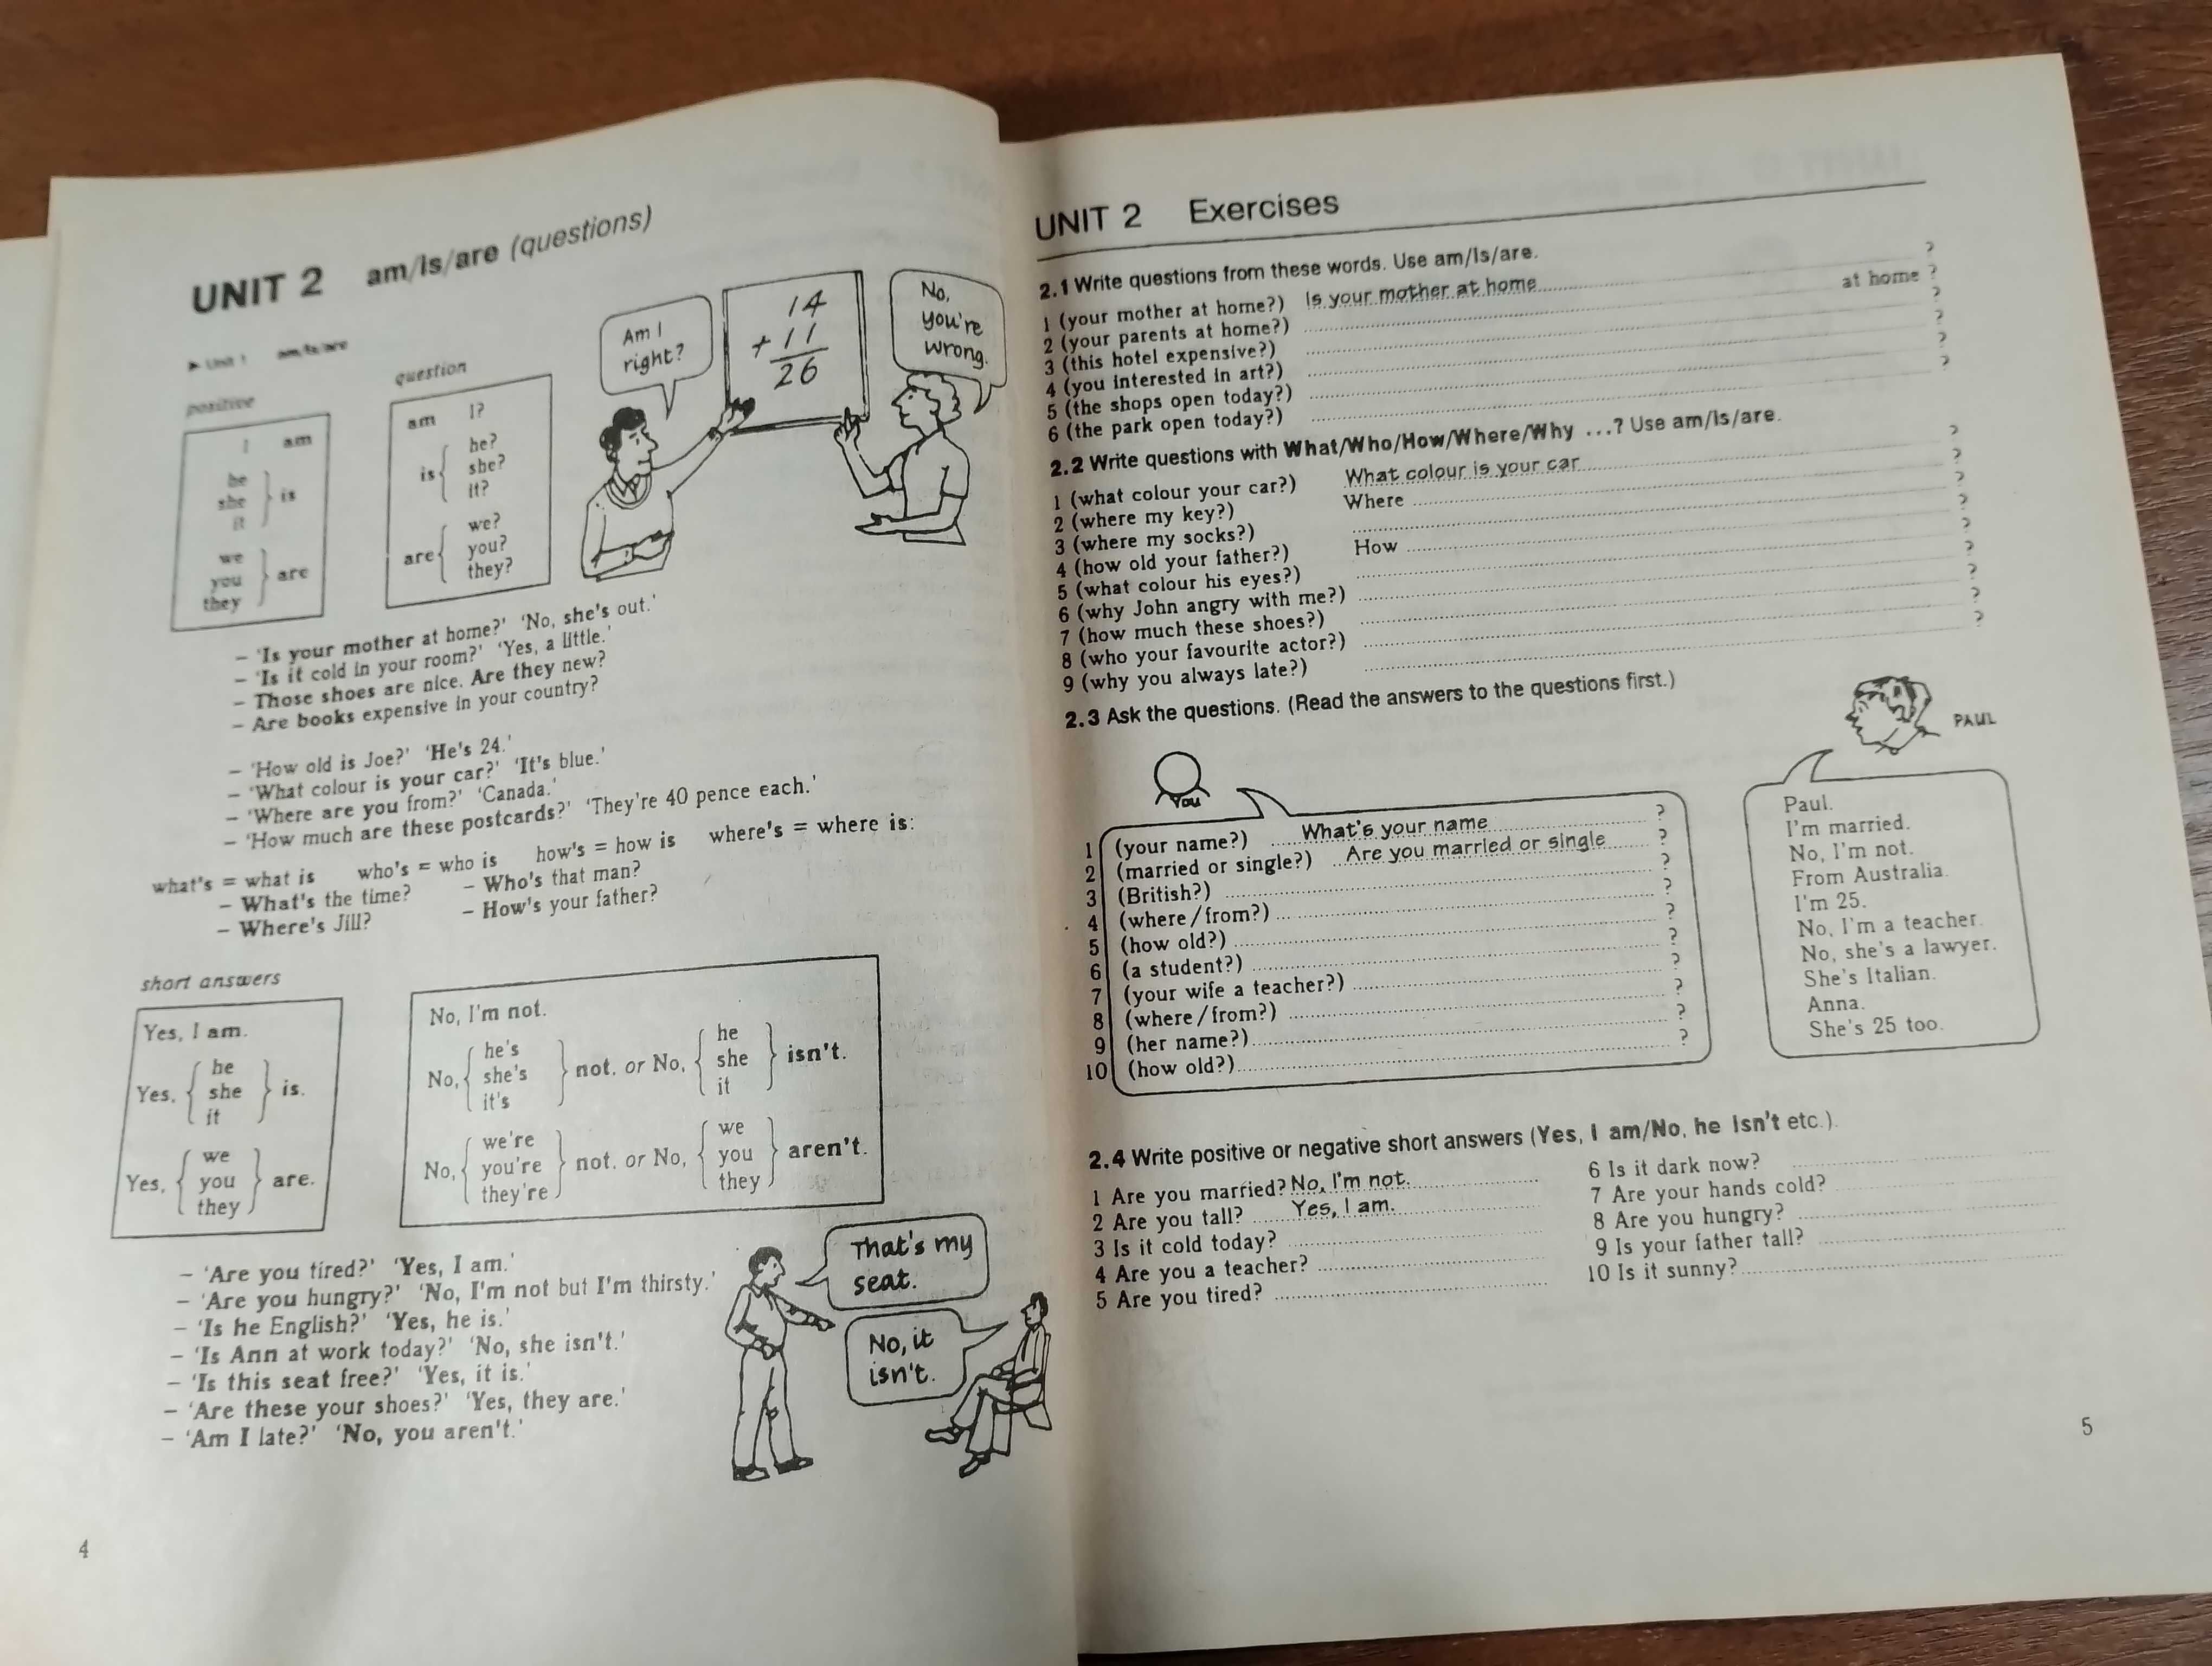 UNIT 2 am/is/are (questions)
► Unit 1 am/is/are
positive
I am
he
she
it
is
we
you
they
are
question
am I?
is
he?
she?
it?
are
we?
you?
they?
Am I
right?
14
+ 11
26
No,
you're
wrong.
– 'Is your mother at home?' 'No, she's out.'
– 'Is it cold in your room?' 'Yes, a little.'
– Those shoes are nice. Are they new?
– Are books expensive in your country?
– 'How old is Joe?' 'He's 24.'
– 'What colour is your car?' 'It's blue.'
– 'Where are you from?' 'Canada.'
– 'How much are these postcards?' 'They're 40 pence each.'
what's = what is who's = who is how's = how is where's = where is:
– What's the time? – Who's that man?
– Where's Jill? – How's your father?
short answers
Yes, I am.
Yes,
he
she
it
is.
Yes,
we
you
they
are.
No, I'm not.
No,
he's
she's
it's
not. or No,
he
she
it
isn't.
No,
we're
you're
they're
not. or No,
we
you
they
aren't.
– 'Are you tired?' 'Yes, I am.'
– 'Are you hungry?' 'No, I'm not but I'm thirsty.'
– 'Is he English?' 'Yes, he is.'
– 'Is Ann at work today?' 'No, she isn't.'
– 'Is this seat free?' 'Yes, it is.'
– 'Are these your shoes?' 'Yes, they are.'
– 'Am I late?' 'No, you aren't.'
That's my
seat.
No, it
isn't.
4
UNIT 2 Exercises
2.1 Write questions from these words. Use am/is/are.
1 (your mother at home?) Is your mother at home ?
2 (your parents at home?) at home ?
3 (this hotel expensive?) ?
4 (you interested in art?) ?
5 (the shops open today?) ?
6 (the park open today?) ?
2.2 Write questions with What/Who/How/Where/Why ...? Use am/is/are.
1 (what colour your car?) What colour is your car ?
2 (where my key?) Where ?
3 (where my socks?) ?
4 (how old your father?) How ?
5 (what colour his eyes?) ?
6 (why John angry with me?) ?
7 (how much these shoes?) ?
8 (who your favourite actor?) ?
9 (why you always late?) ?
2.3 Ask the questions. (Read the answers to the questions first.)
You
PAUL
1 (your name?) What's your name ?
2 (married or single?) Are you married or single ?
3 (British?) ?
4 (where/from?) ?
5 (how old?) ?
6 (a student?) ?
7 (your wife a teacher?) ?
8 (where/from?) ?
9 (her name?) ?
10 (how old?) ?
Paul.
I'm married.
No, I'm not.
From Australia.
I'm 25.
No, I'm a teacher.
No, she's a lawyer.
She's Italian.
Anna.
She's 25 too.
2.4 Write positive or negative short answers (Yes, I am/No, he isn't etc.).
1 Are you married? No, I'm not.
2 Are you tall? Yes, I am.
3 Is it cold today?
4 Are you a teacher?
5 Are you tired?
6 Is it dark now?
7 Are your hands cold?
8 Are you hungry?
9 Is your father tall?
10 Is it sunny?
5